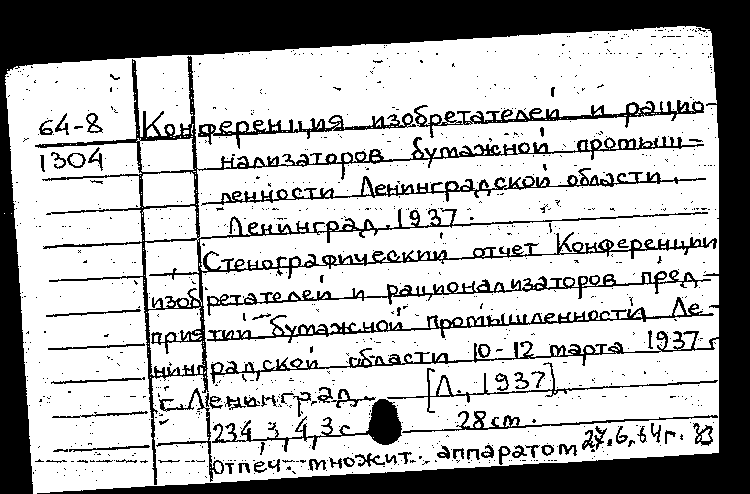 64-8 Конференция изобретателей и рацио-
1304 нализаторов бумажной промыш=
ленности Ленинградской области.
Ленинград. 1937.
Стенографический отчет Конференции
изобретателей и рационализаторов пред-
приятий бумажной промышленности Ле-
нинградской области 10-12 марта 1937 г
г. Ленинград. [Л., 1937].
234, 3, 4, 3 с 28 см.
Отпеч. множит. аппаратом 27.6.64 г.